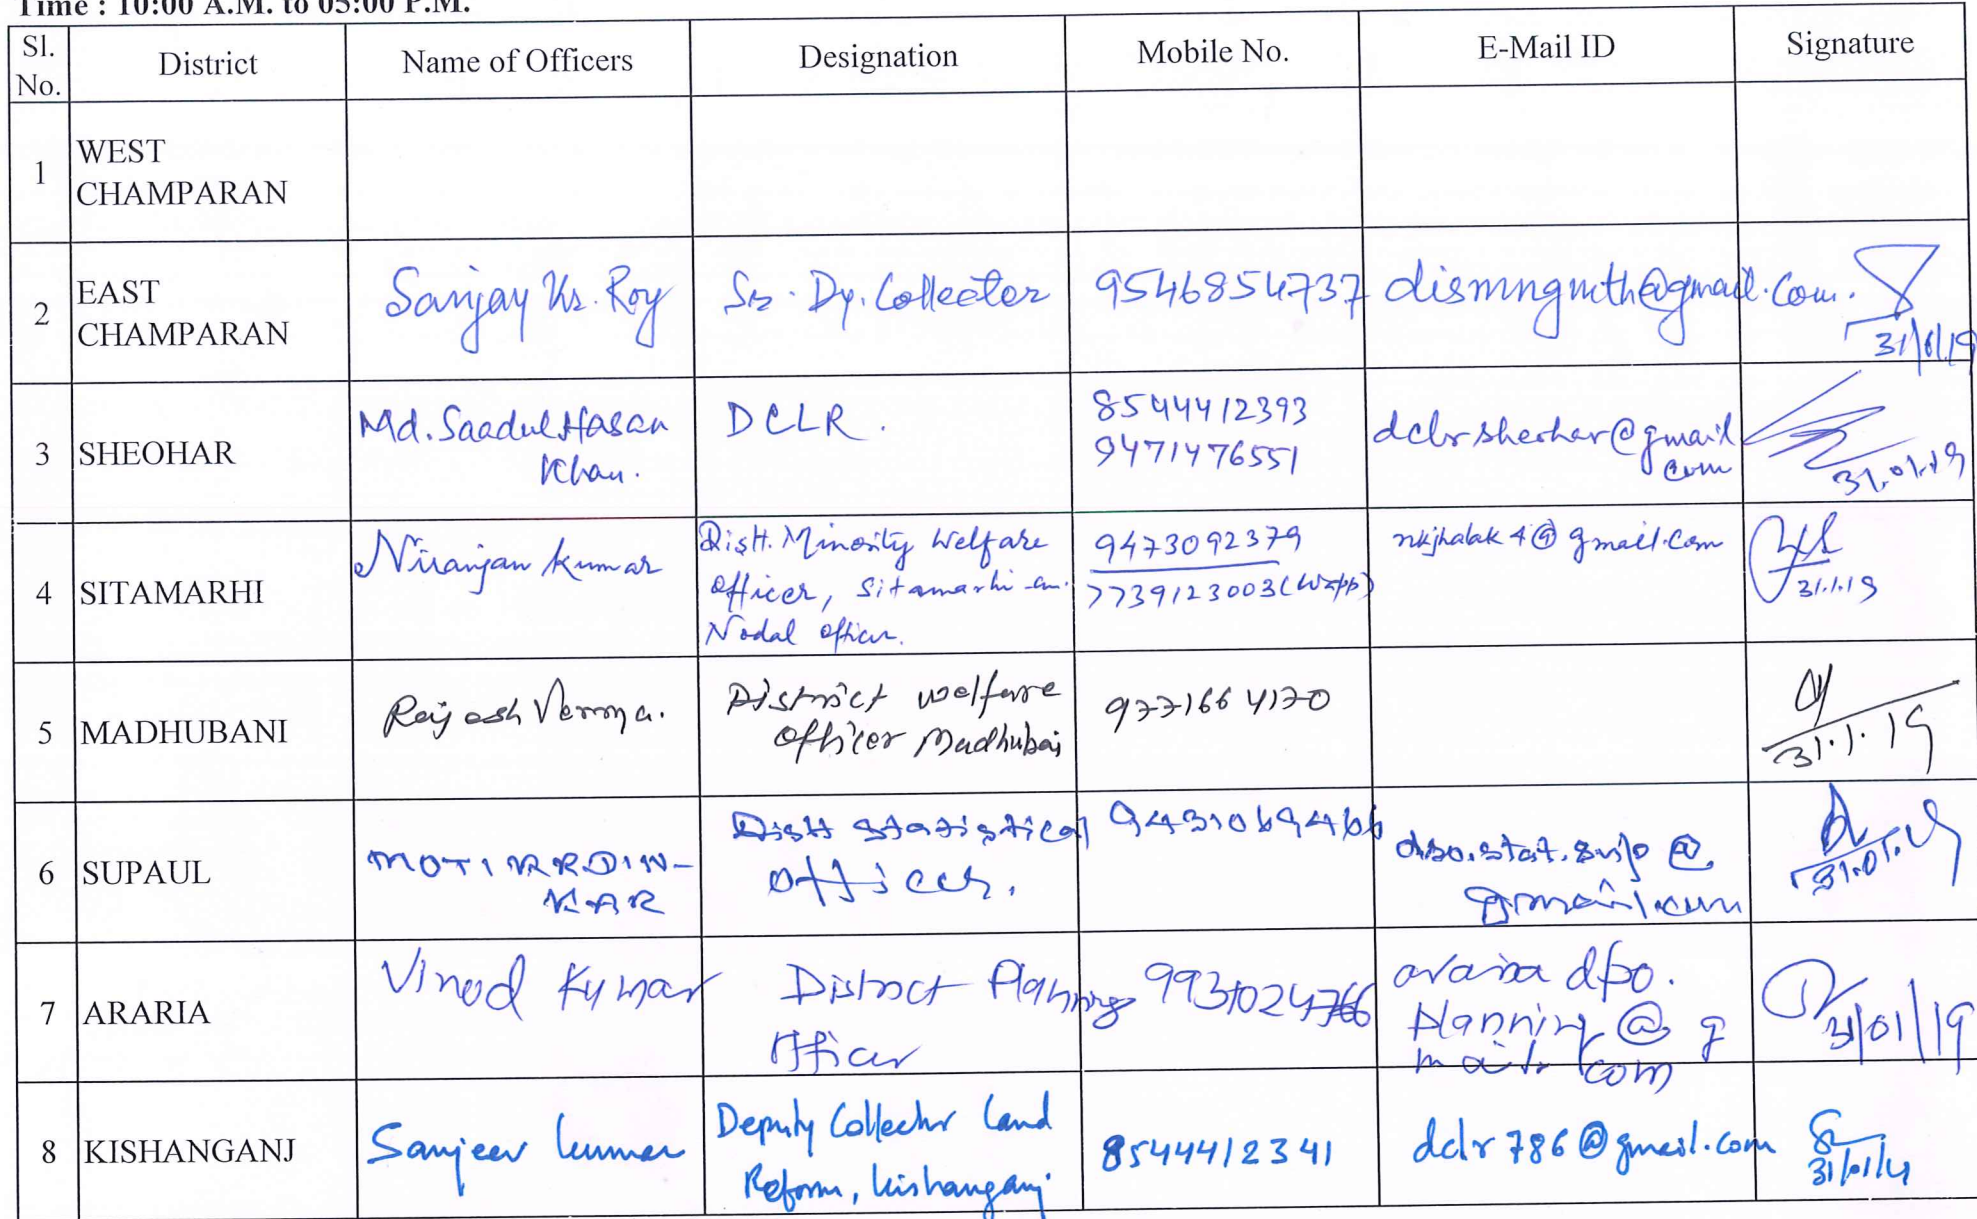 Time : 10:00 A.M. to 05:00 P.M.
Sl. No. District Name of Officers Designation Mobile No. E-Mail ID Signature
1 WEST
CHAMPARAN
2 EAST
CHAMPARAN
Sanjay Kr. Roy
Sr. Dy. Collector
9546854737
dismngmth@gmail.com.
31/01/19
3 SHEOHAR
Md. Saadul Hasan
Khan.
DCLR.
8544412393
9471476551
dclrsheohar@gmail
com
31.01.19
4 SITAMARHI
Niranjan Kumar
Distt. Minority Welfare
officer, Sitamarhi
Nodal officer.
9473092379
7739123003 (Wapp)
nkjhalak4@gmail.com
31.1.19
5 MADHUBANI
Rajesh Verma.
District welfare
officer Madhubai
9771664170
31.1.19
6 SUPAUL
Distt statistical
officer.
9431069466
dso.stat.sup@
gmail.com
31.01.19
7 ARARIA
Vinod Kumar
District Planning
Officer
araria dpo.
planning@g
mail.com
31/01/19
8 KISHANGANJ
Sanjeev kumar
Deputy Collector Land
Reform, kishanganj
8544412341
dclr786@gmail.com
31/01/19